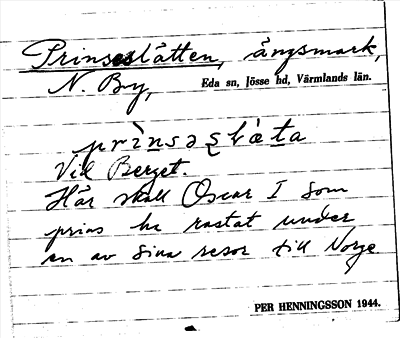 Prinseslätten, ängsmark,
N. By, Eda sn, Jösse hd, Värmlands län.
Vid Berget.
Här skall Oscar I som
prins ha rastat under
en av sina resor till Norge
PER HENNINGSSON 1944.